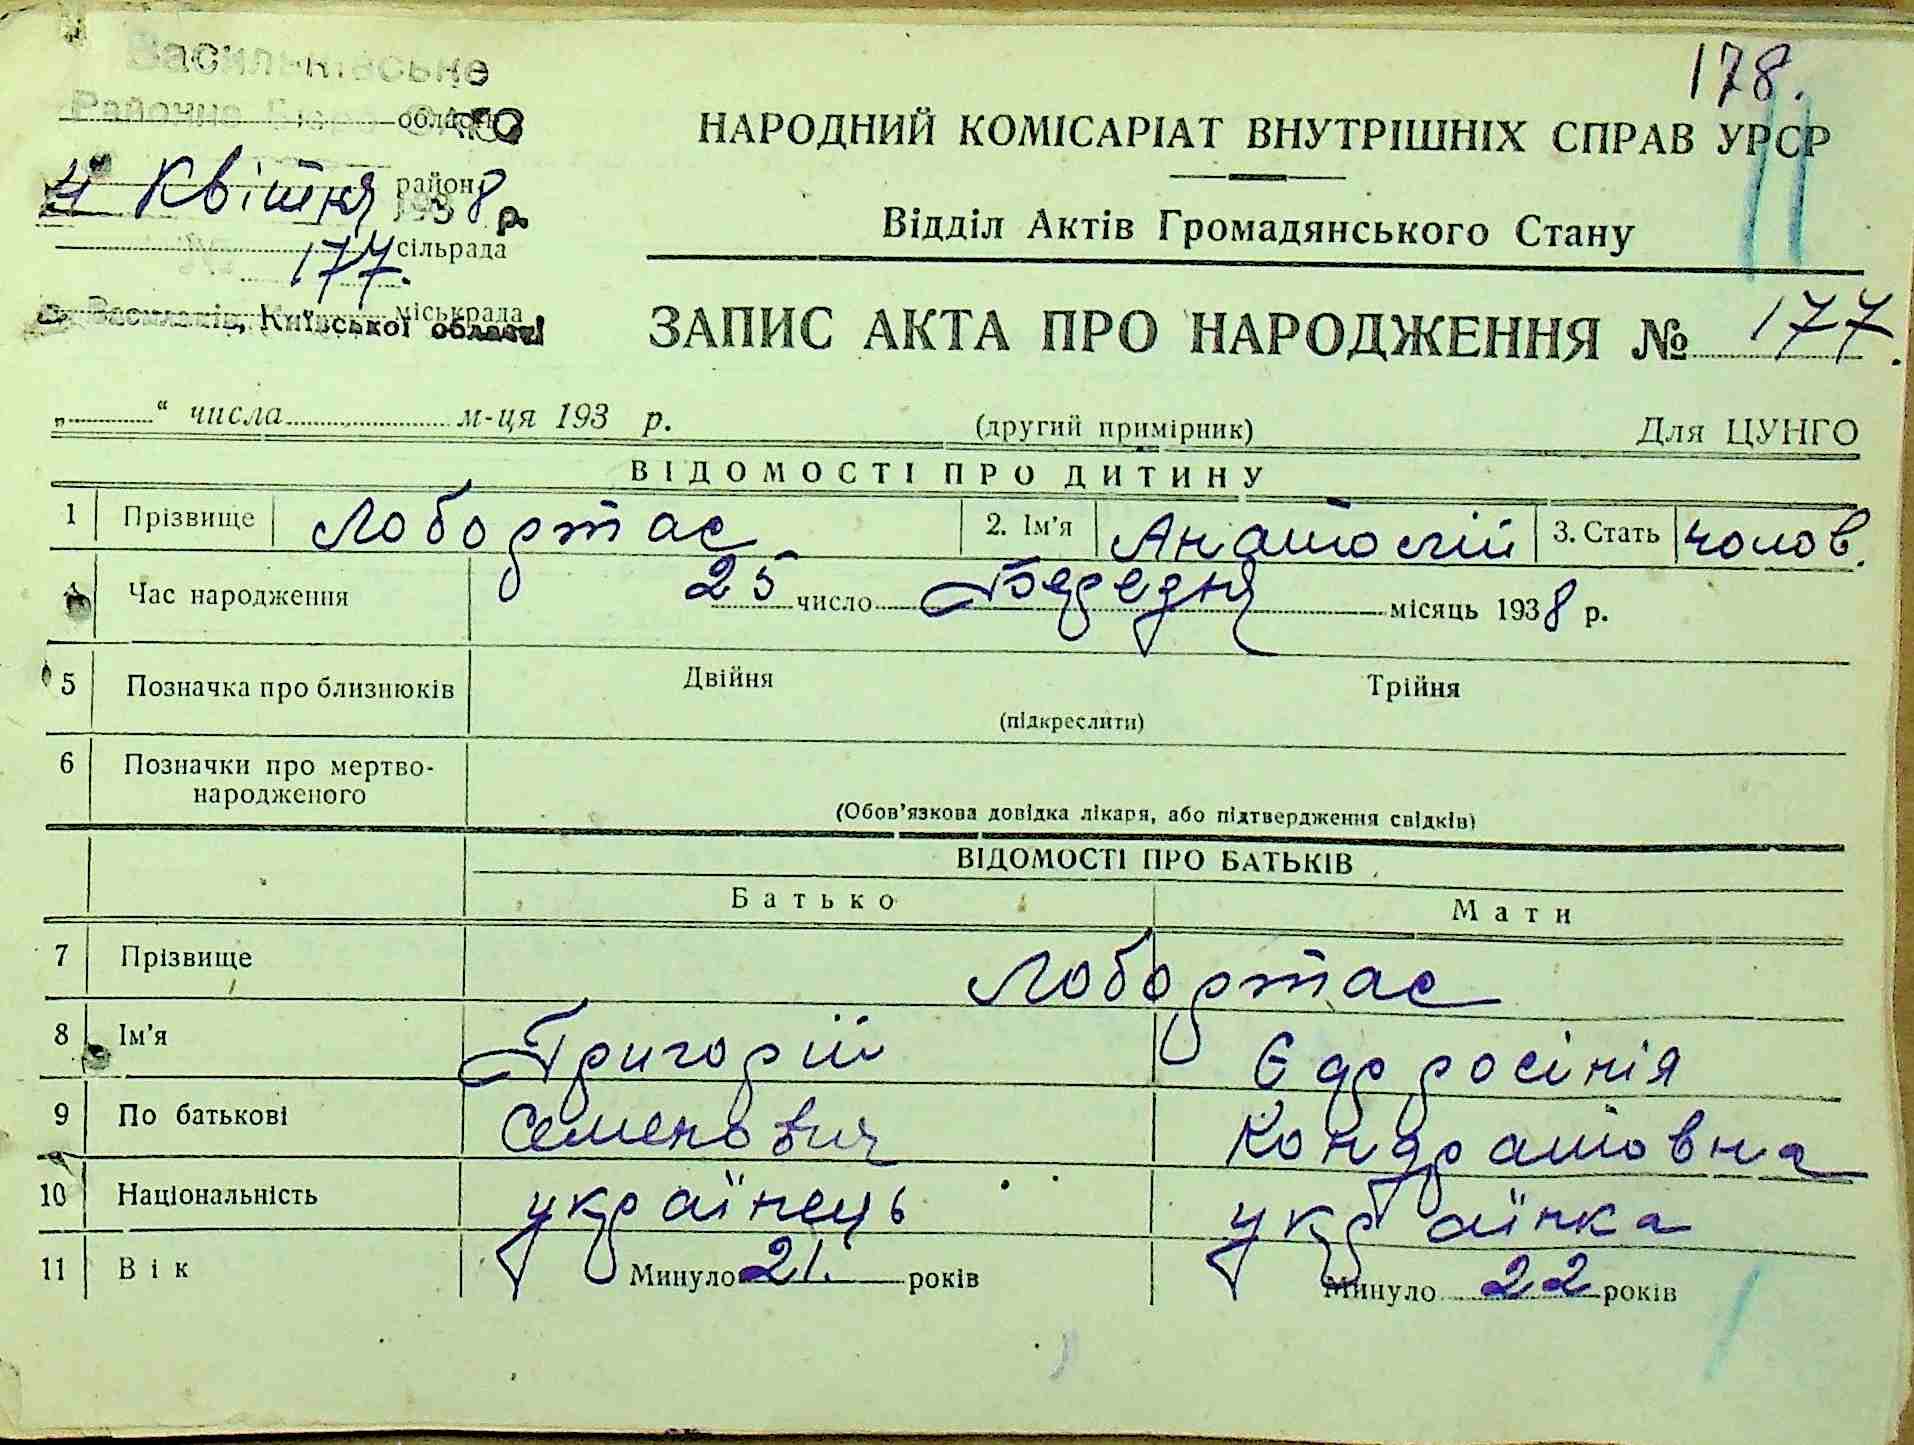 178.
Васильківське
Районне Бюро ЗАГС
область
4 Квітня 1938 р.
район
сільрада
№ 177.
міськрада
м. Васильків, Київської області
НАРОДНИЙ КОМІСАРІАТ ВНУТРІШНІХ СПРАВ УРСР
Відділ Актів Громадянського Стану
ЗАПИС АКТА ПРО НАРОДЖЕННЯ № 177.
„ “ числа м-ця 193 р. (другий примірник) Для ЦУНГО
ВІДОМОСТІ ПРО ДИТИНУ
1 Прізвище Лобортас 2. Ім’я Анатолій 3. Стать чолов.
Час народження 25 число Березня місяць 1938 р.
5 Позначка про близнюків Двійня Трійня
(підкреслити)
6 Позначки про мертво-
народженого
(Обов’язкова довідка лікаря, або підтвердження свідків)
ВІДОМОСТІ ПРО БАТЬКІВ
Батько Мати
7 Прізвище Лобортас
8 Ім’я Григорій Єфросінія
9 По батькові Семенович Кондратовна
10 Національність українець українка
11 Вік Минуло 21. років Минуло 22 років